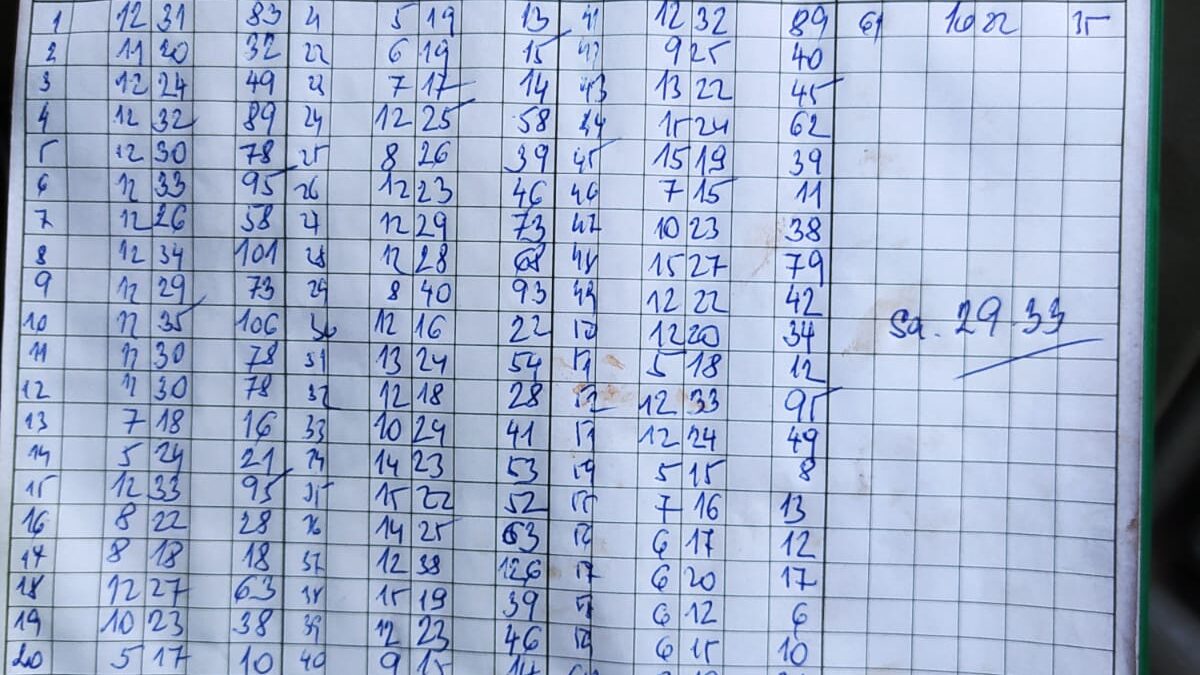 1 12 31 83 21 5 19 13 41 12 32 89 61 10 22 35
2 11 20 32 22 6 19 15 42 9 25 40
3 12 24 49 23 7 17 14 43 13 22 45
4 12 32 89 24 12 25 58 44 15 24 62
5 12 30 78 25 8 26 39 45 15 19 39
6 12 33 95 26 12 23 46 46 7 15 11
7 12 26 58 27 12 29 73 47 10 23 38
8 12 34 101 28 12 28 68 48 15 27 79
9 12 29 73 29 8 40 93 49 12 22 42
10 12 35 106 30 12 16 22 50 12 20 34 Sa. 29.33
11 12 30 78 31 13 24 54 51 5 18 12
12 12 30 78 32 12 18 28 52 12 33 95
13 7 18 16 33 10 24 41 53 12 24 49
14 5 24 21 34 14 23 53 54 5 15 8
15 12 33 95 35 15 22 52 55 7 16 13
16 8 22 28 36 14 25 63 56 6 17 12
17 8 18 18 37 12 38 126 57 6 20 17
18 12 27 63 38 15 19 39 58 6 12 6
19 10 23 38 39 12 23 46 59 6 15 10
20 5 17 10 40 9 15 14